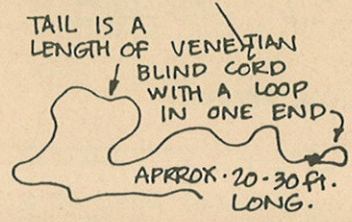 TAIL IS A
LENGTH OF VENETIAN
BLIND CORD
WITH A LOOP
IN ONE END
APRROX. 20-30 ft.
LONG.